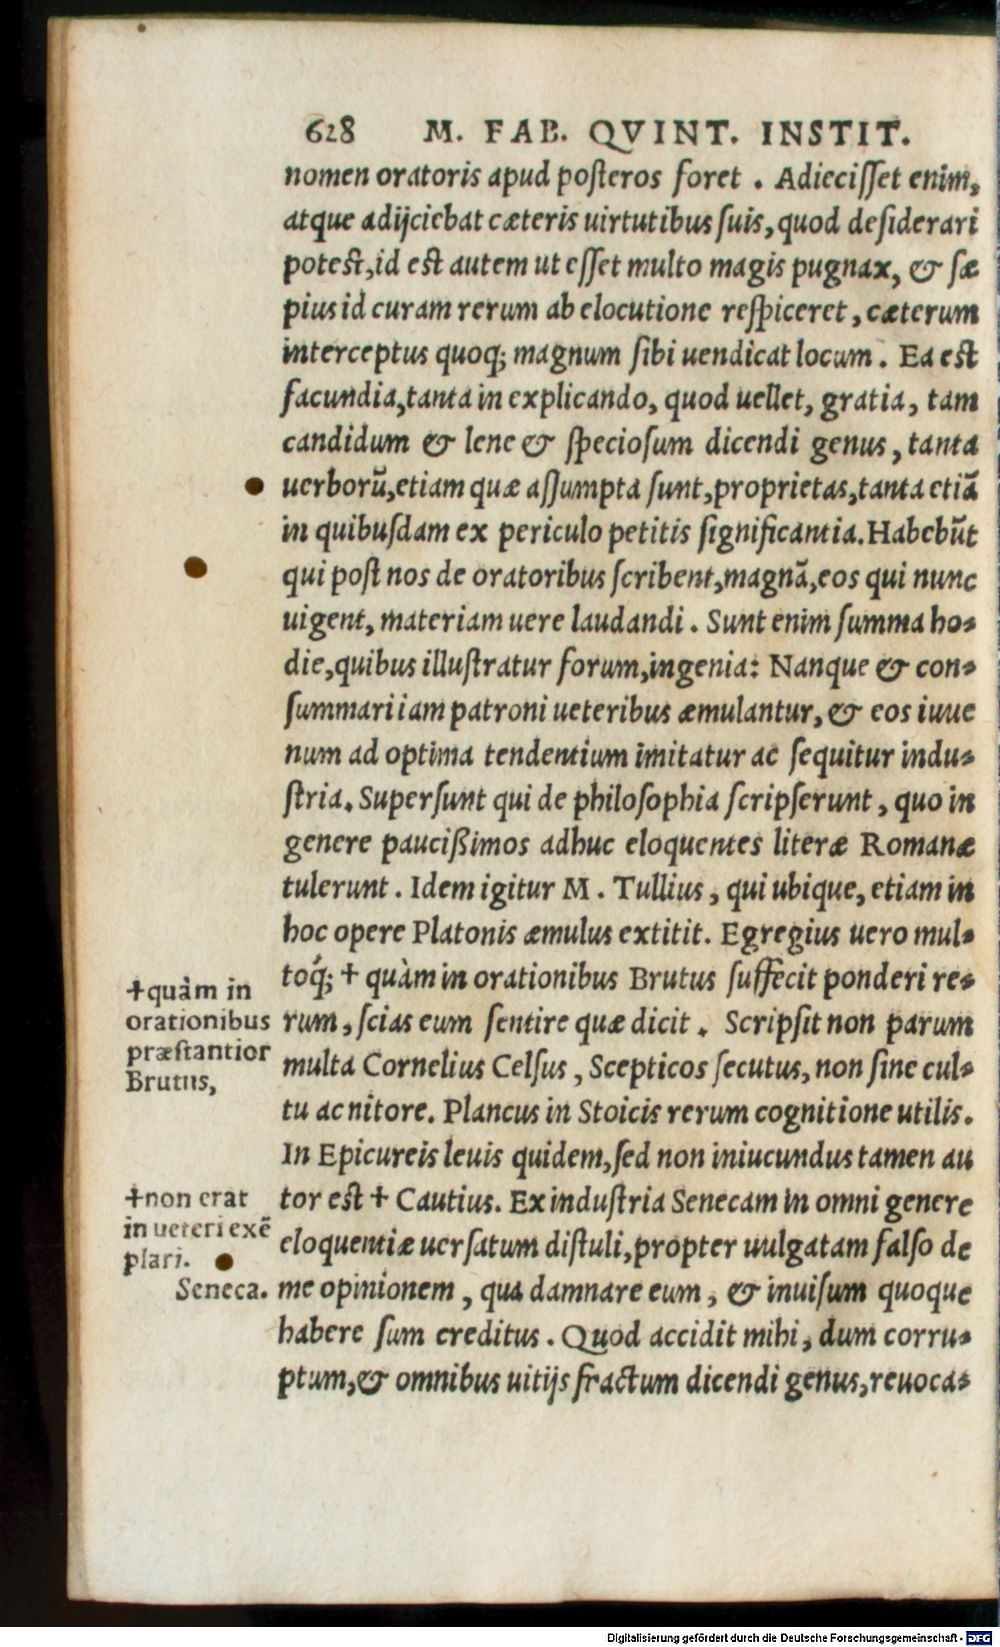 628 M. FAB. QVINT. INSTIT.
nomen oratoris apud posteros foret . Adiecisset enim,
atque adijciebat cæteris uirtutibus suis, quod desiderari
potest, id est autem ut esset multo magis pugnax, & sæ
pius id curam rerum ab elocutione respiceret, cæterum
interceptus quoq; magnum sibi uendicat locum . Ea est
facundia, tanta in explicando, quod uellet, gratia, tam
candidum & lene & speciosum dicendi genus, tanta
uerborũ, etiam quæ assumpta sunt, proprietas, tanta etiã
in quibusdam ex periculo petitis significantia. Habebũt
qui post nos de oratoribus scribent, magnã, eos qui nunc
uigent, materiam uere laudandi . Sunt enim summa ho-
die, quibus illustratur forum, ingenia: Nanque & con-
summari iam patroni ueteribus æmulantur, & eos iuue
num ad optima tendentium imitatur ac sequitur indu-
stria. Supersunt qui de philosophia scripserunt, quo in
genere paucißimos adhuc eloquentes literæ Romanæ
tulerunt . Idem igitur M . Tullius, qui ubique, etiam in
hoc opere Platonis æmulus extitit. Egregius uero mul-
toq́; + quàm in orationibus Brutus suffecit ponderi re-
rum, scias eum sentire quæ dicit . Scripsit non parum
multa Cornelius Celsus, Scepticos secutus, non sine cul-
tu ac nitore. Plancus in Stoicis rerum cognitione utilis.
In Epicureis leuis quidem, sed non iniucundus tamen au
tor est + Cautius. Ex industria Senecam in omni genere
eloquentiæ uersatum distuli, propter uulgatam falso de
me opinionem, qua damnare eum, & inuisum quoque
habere sum creditus . Quod accidit mihi, dum corru-
ptum, & omnibus uitijs fractum dicendi genus, reuoca-
+quàm in
orationibus
præstantior
Brutus,
+non erat
in ueteri exẽ
plari.
Seneca.
Digitalisierung gefördert durch die Deutsche Forschungsgemeinschaft - DFG